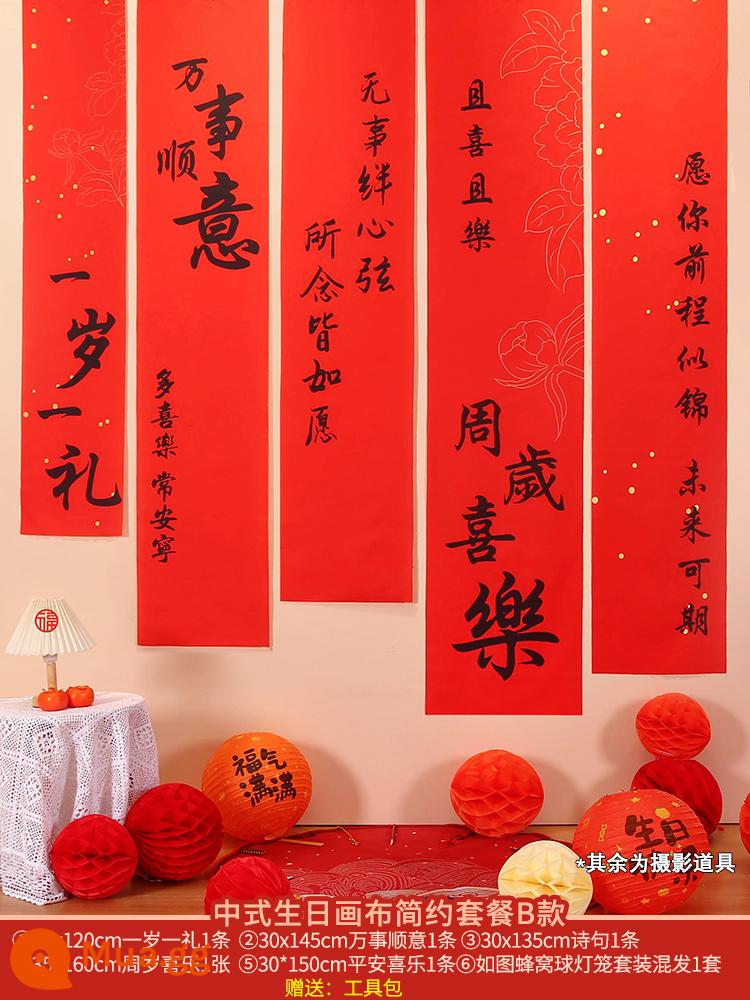 一岁一礼
万事顺意
多喜樂 常安寧
无事绊心弦
所念皆如愿
且喜且樂
周歲喜樂
愿你前程似锦 未来可期
福
福气满满
生日
*其余为摄影道具
中式生日画布简约套餐B款
120cm一岁一礼1条 ②30x145cm万事顺意1条 ③30x135cm诗句1条
160cm周岁喜乐1张 ⑤30*150cm平安喜乐1条⑥如图蜂窝球灯笼套装混发1套
赠送：工具包
Mua.gg